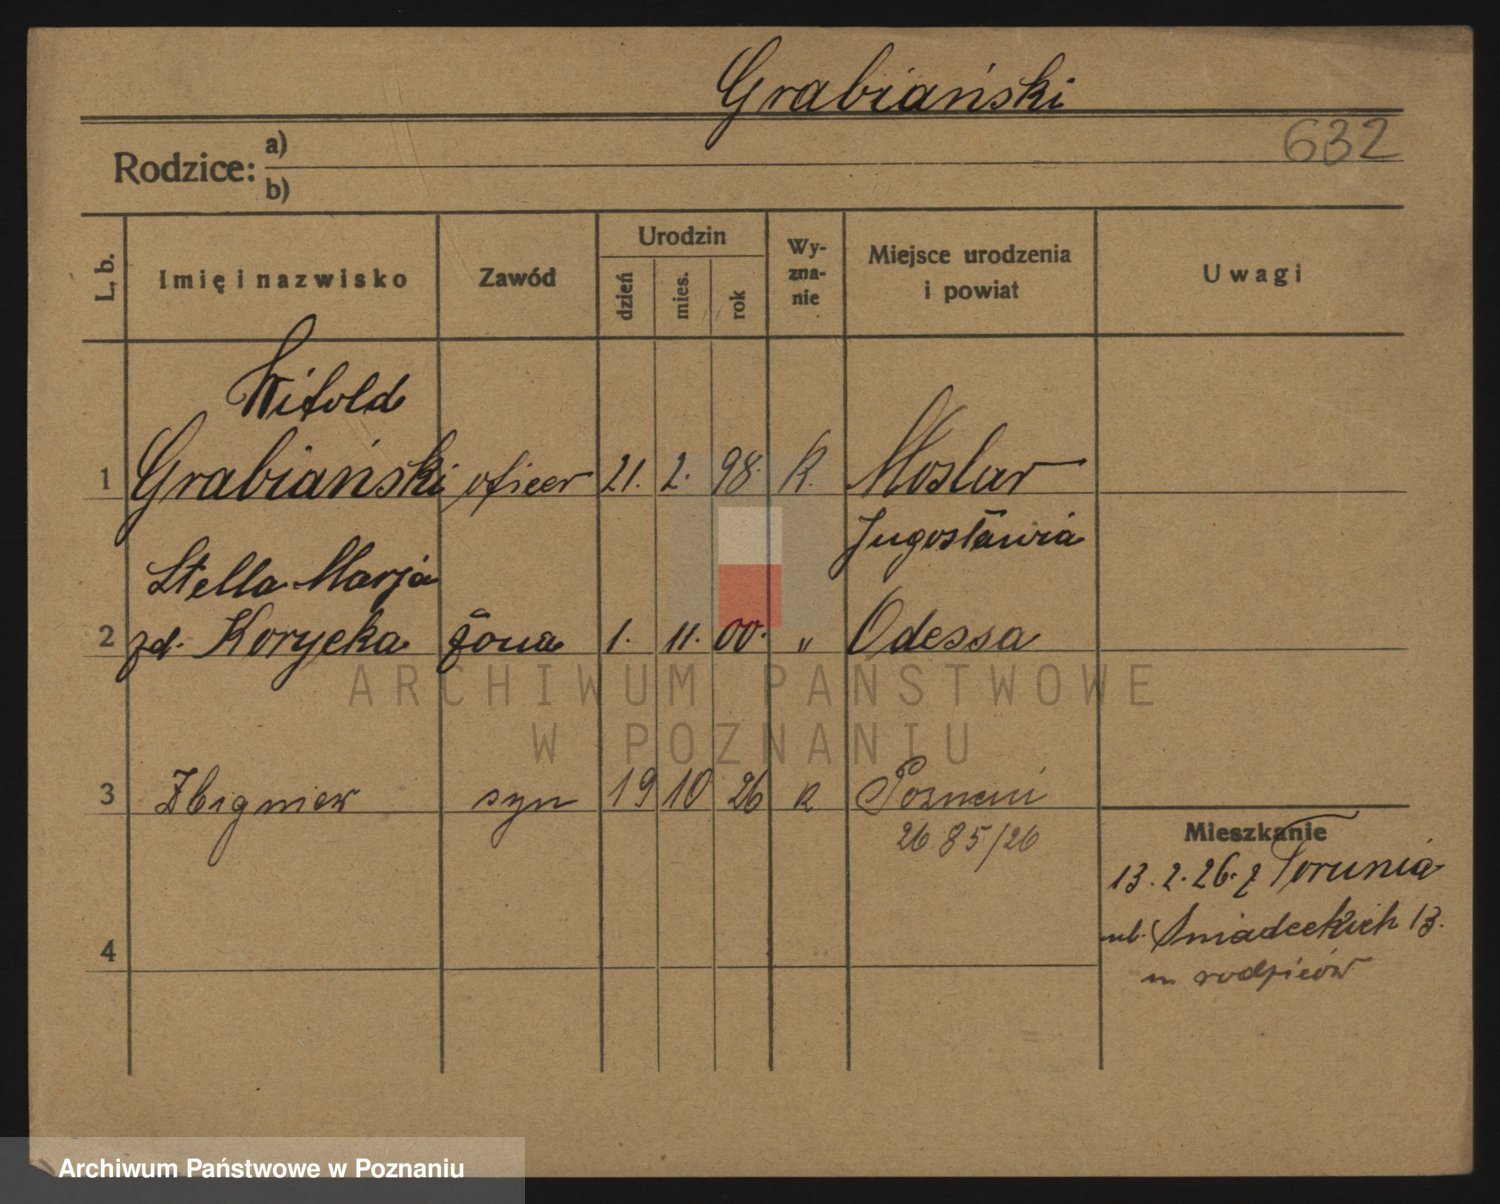 Grabiański
632
Rodzice: a)
b)
L. b. Imię i nazwisko Zawód Urodzin dzień mies. rok Wy-zna-nie Miejsce urodzenia i powiat Uwagi
Witold
1 Grabiański oficer 21. 2. 98. R. Mostar
Jugosławia
Stella Marja
2 zd. Korycka żona 1. 11. 00. " Odessa
ARCHIWUM PAŃSTWOWE
W POZNANIU
3 Zbigniew syn 19 10 26 R Poznań
2685/26
Mieszkanie
13. 2. 26. z Torunia
ul. Śniadeckich 13.
4
u rodziców
Archiwum Państwowe w Poznaniu